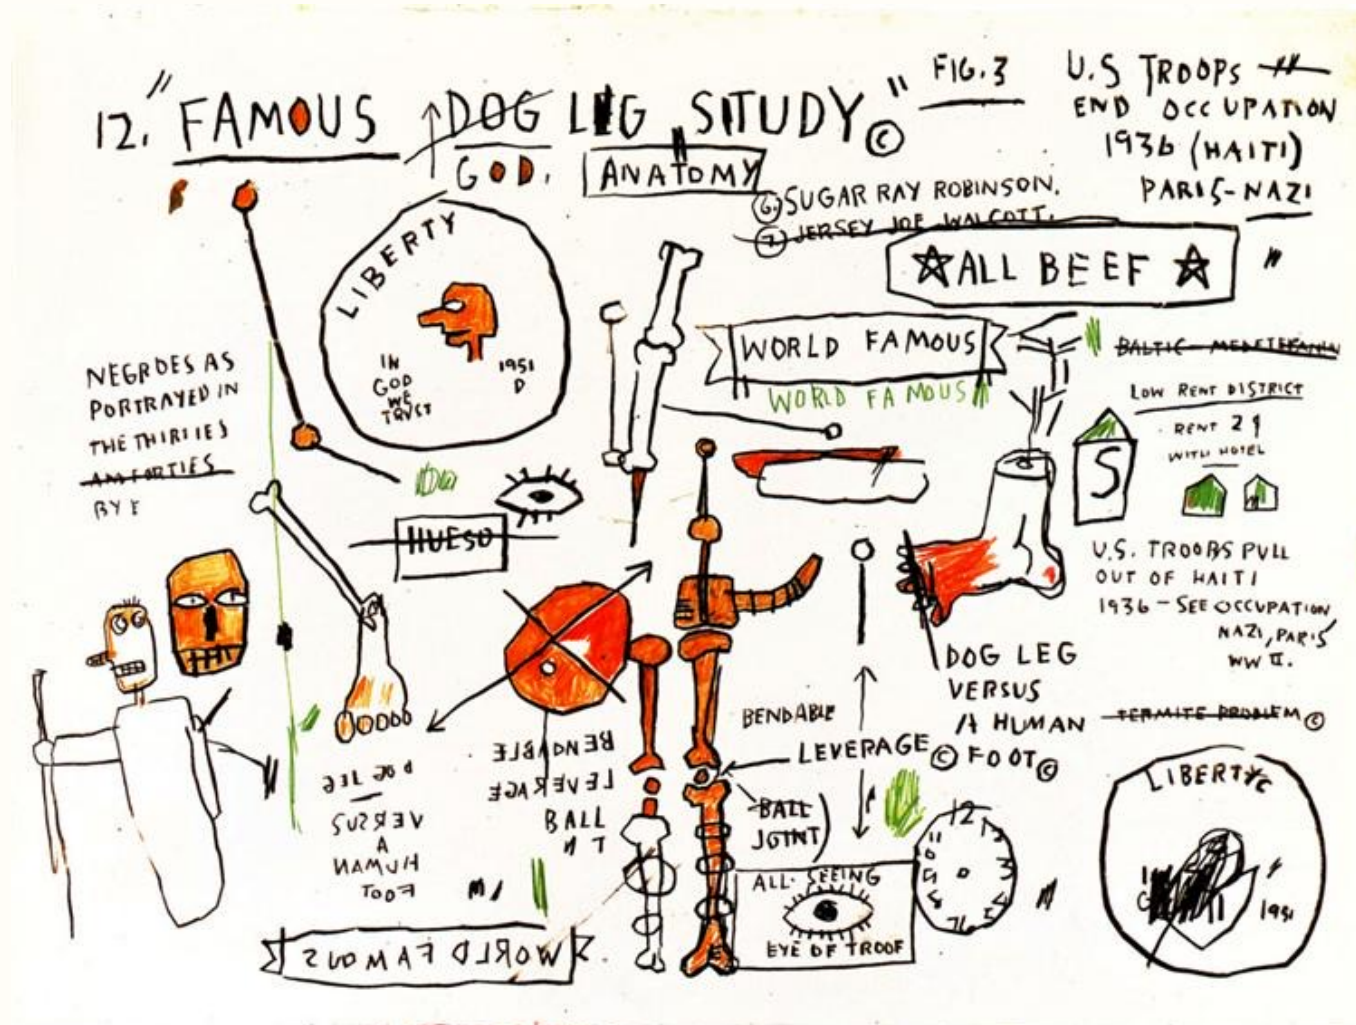 12. "FAMOUS DOG LEG STUDY" ©
GOD. ANATOMY
FIG. 3
U.S TROOPS
END OCCUPATION
1936 (HAITI)
PARIS-NAZI
"
6. SUGAR RAY ROBINSON.
7. JERSEY JOE WALCOTT.
☆ALL BEEF ☆
LIBERTY
IN
GOD
WE
TRUST
1951
D
WORLD FAMOUS
WORLD FAMOUS
LOW RENT DISTRICT
RENT 29
WITH HOTEL
S
NEGROES AS
PORTRAYED IN
THE THIRTIES
AM FORTIES
BY E
HUESO
U.S. TROOPS PULL
OUT OF HAITI
1936 - SEE OCCUPATION
NAZI, PARIS
WW II.
DOG LEG
VERSUS
A HUMAN
© FOOT ©
TERMITE PROBLEM ©
BENDABLE
LEVERAGE
BALL
JOINT
BENDABLE
LEVERAGE
BALL
N T
DOG LEG
VERSUS
A
HUMAN
FOOT
ALL-SEEING
EYE OF TROOF
12
LIBERTY ©
1951
WORLD FAMOUS